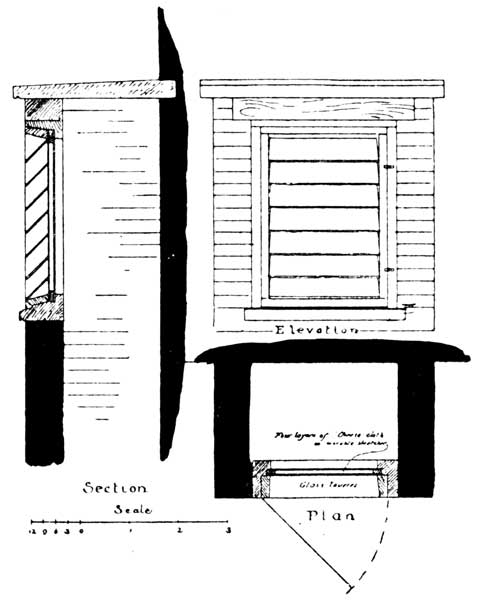 Elevation
Four layers of Cheese cloth
on movable stretcher
Glass louvres
Plan
Section
Scale
12 9 6 3 0 1 2 3